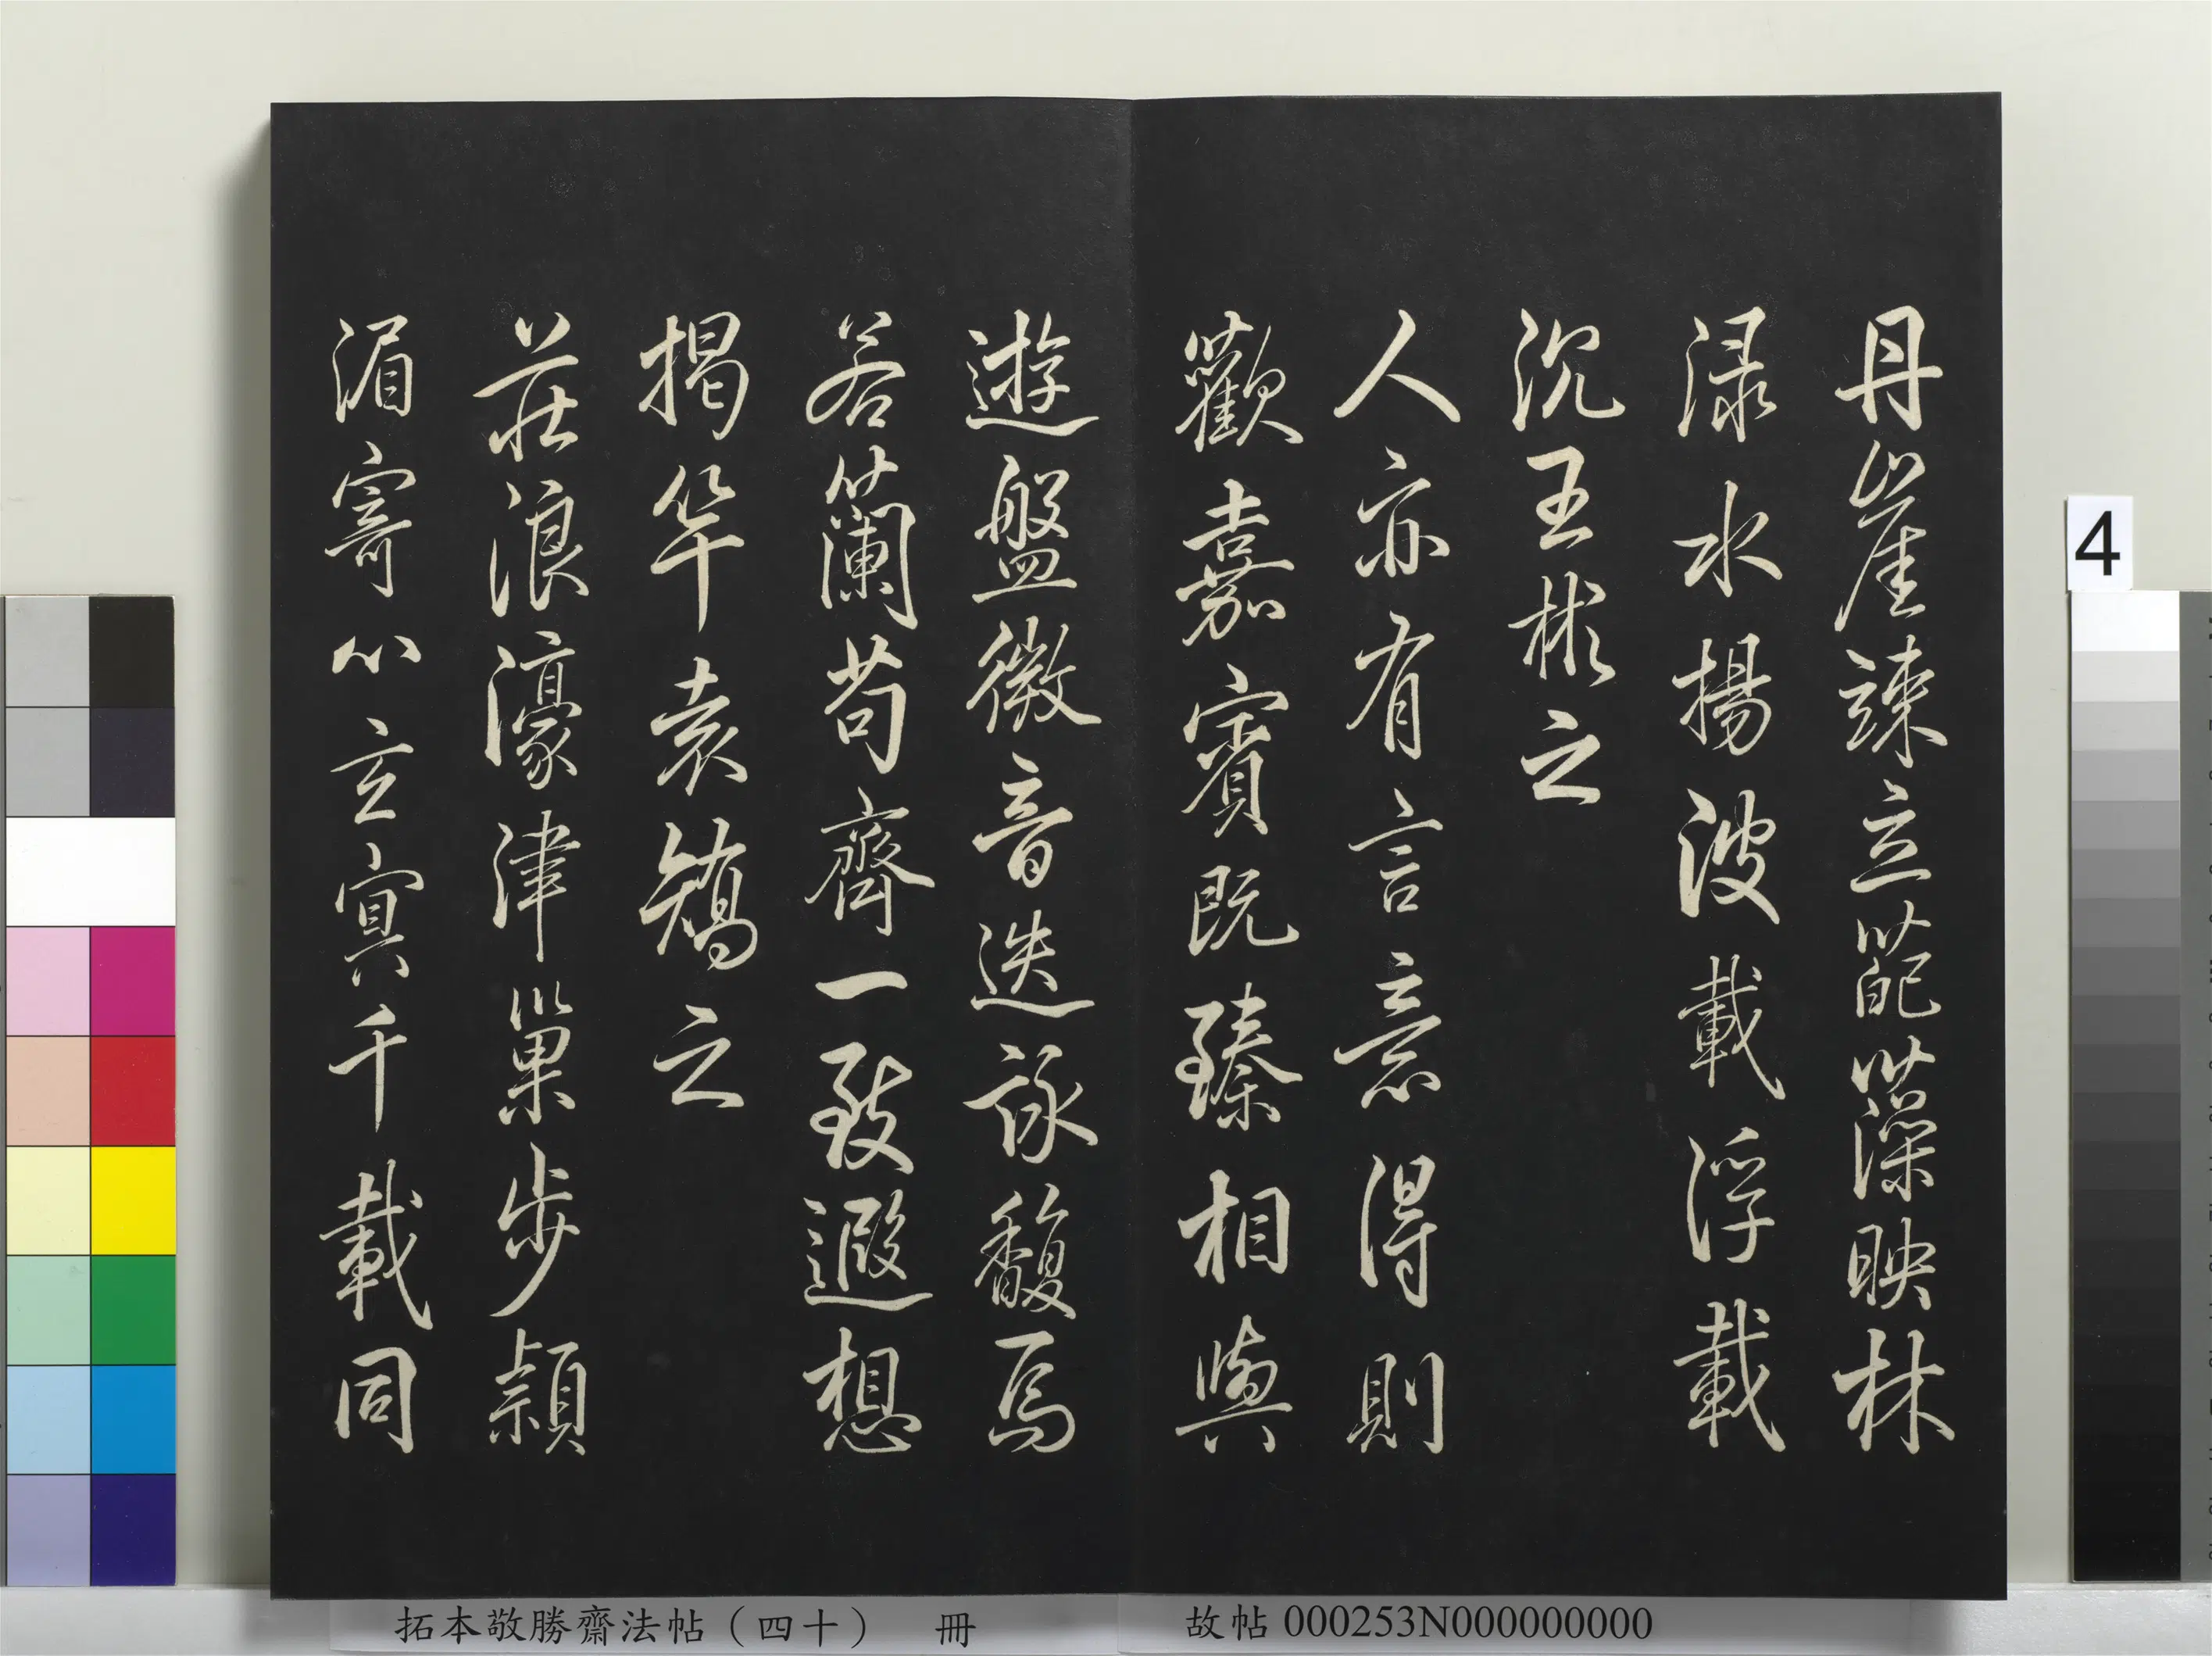 丹崖竦立葩藻映林
渌水揚波載浮載
沉王彬之
人亦有言意得則
歡嘉賓既臻相與
遊盤微音迭詠馥焉
若蘭苟齊一致遐想
揭竿袁矯之
莊浪濠津巢步頴
湄寄心玄冥千載同
4
拓本敬勝齋法帖（四十） 冊
故帖000253N000000000